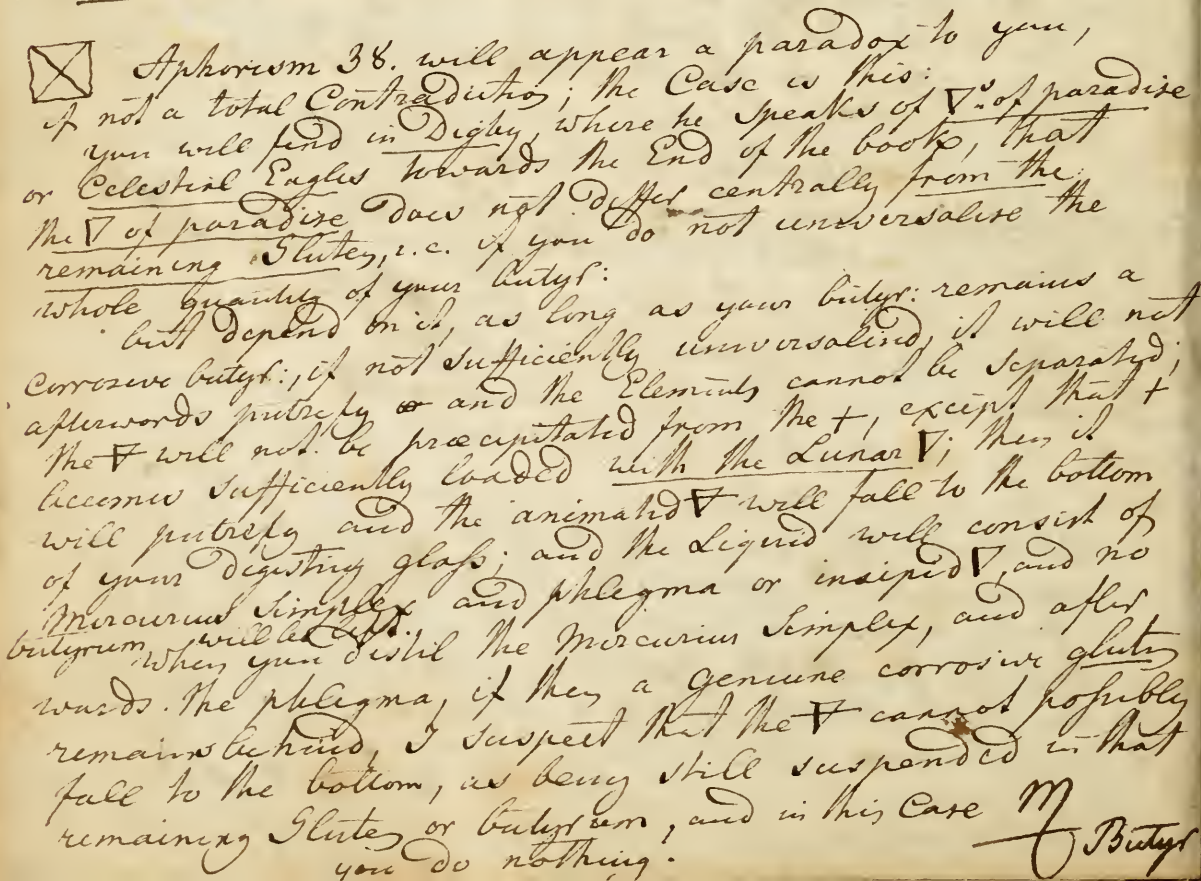 Aphorism 38. will appear a paradox to you,
if not a total Contradiction; the Case is this:
you will find in Digby, where he speaks of 🜄s. of paradise
or Celestial Eagles towards the End of the book, that
the 🜄 of paradise does not differ centrally from the
remaining Gluten, i.e. if you do not universalise the
whole quantity of your butyr:
but depend on it, as long as your butyr: remains a
corrosive butyr:, if not sufficiently universalised, it will not
afterwords putrefy and the Elements cannot be separated;
the 🜃 will not be præcipitated from the +, except that +
becomes sufficiently loaded with the Lunar 🜄; then it
will putrefy and the animated 🜃 will fall to the bottom
of your digesting glass; and the Liquid will consist of
Mercurius Simplex and phlegma or insipid 🜄, and no
butyrum, will be left.
When you distil the Mercurius Simplex, and after
wards. the phlegma, if then a genuine corrosive gluten
remains behind, I suspect that the 🜃 cannot possibly
fall to the bottom, as being still suspended in that
remaining Gluten or butyrum, and in this Case
you do nothing.
Butyr